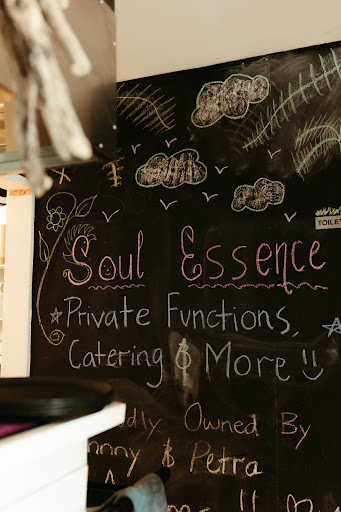 TOILE
Soul Essence
Private Functions,
Catering & More!!
dly Owned By
nny & Petra